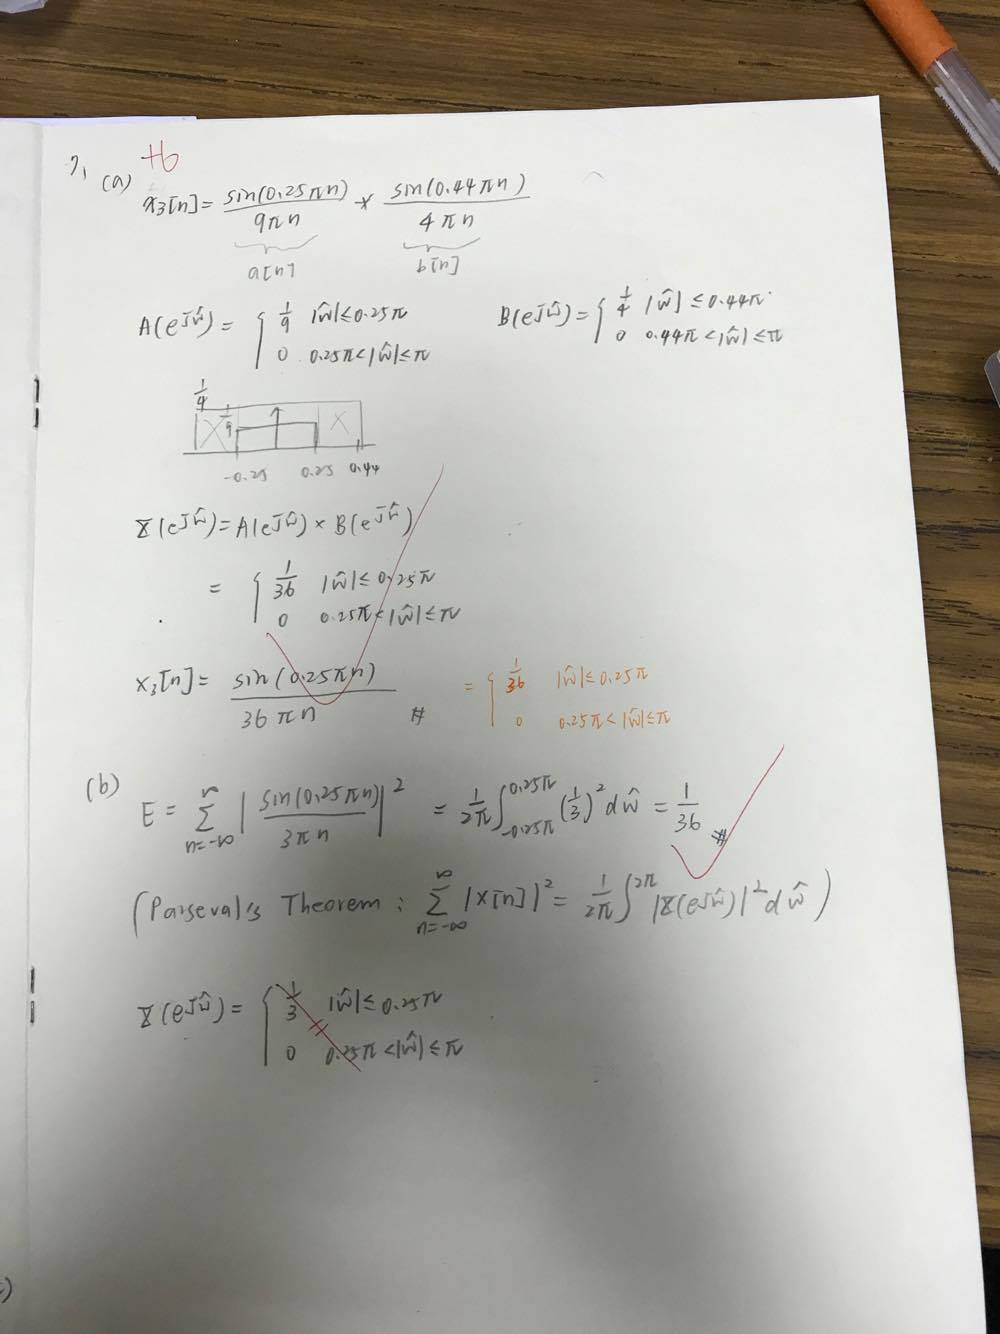 7,
+6
(a) x₃[n] = sin(0.25πn)/9πn * sin(0.44πn)/4πn
a[n] b[n]
A(e^jŵ) = { 1/9 |ŵ| ≤ 0.25π B(e^jŵ) = { 1/4 |ŵ| ≤ 0.44π
0 0.25π < |ŵ| ≤ π 0 0.44π < |ŵ| ≤ π
1/4
X 1/9 X
-0.25 0.25 0.44
X(e^jŵ) = A(e^jŵ) × B(e^jŵ)
= { 1/36 |ŵ| ≤ 0.25π
0 0.25π < |ŵ| ≤ π
x₃[n] = sin(0.25πn)/36πn # = { 1/36 |ŵ| ≤ 0.25π
0 0.25π < |ŵ| ≤ π
(b) E = ∑_{n=-∞}^{∞} |sin(0.25πn)/3πn|² = 1/2π ∫_{-0.25π}^{0.25π} (1/3)² dŵ = 1/36 #
(Parseval's Theorem : ∑_{n=-∞}^{∞} |X[n]|² = 1/2π ∫^{2π} |X(e^jŵ)|² dŵ)
X(e^jŵ) = { 1/3 |ŵ| ≤ 0.25π
0 0.25π < |ŵ| ≤ π